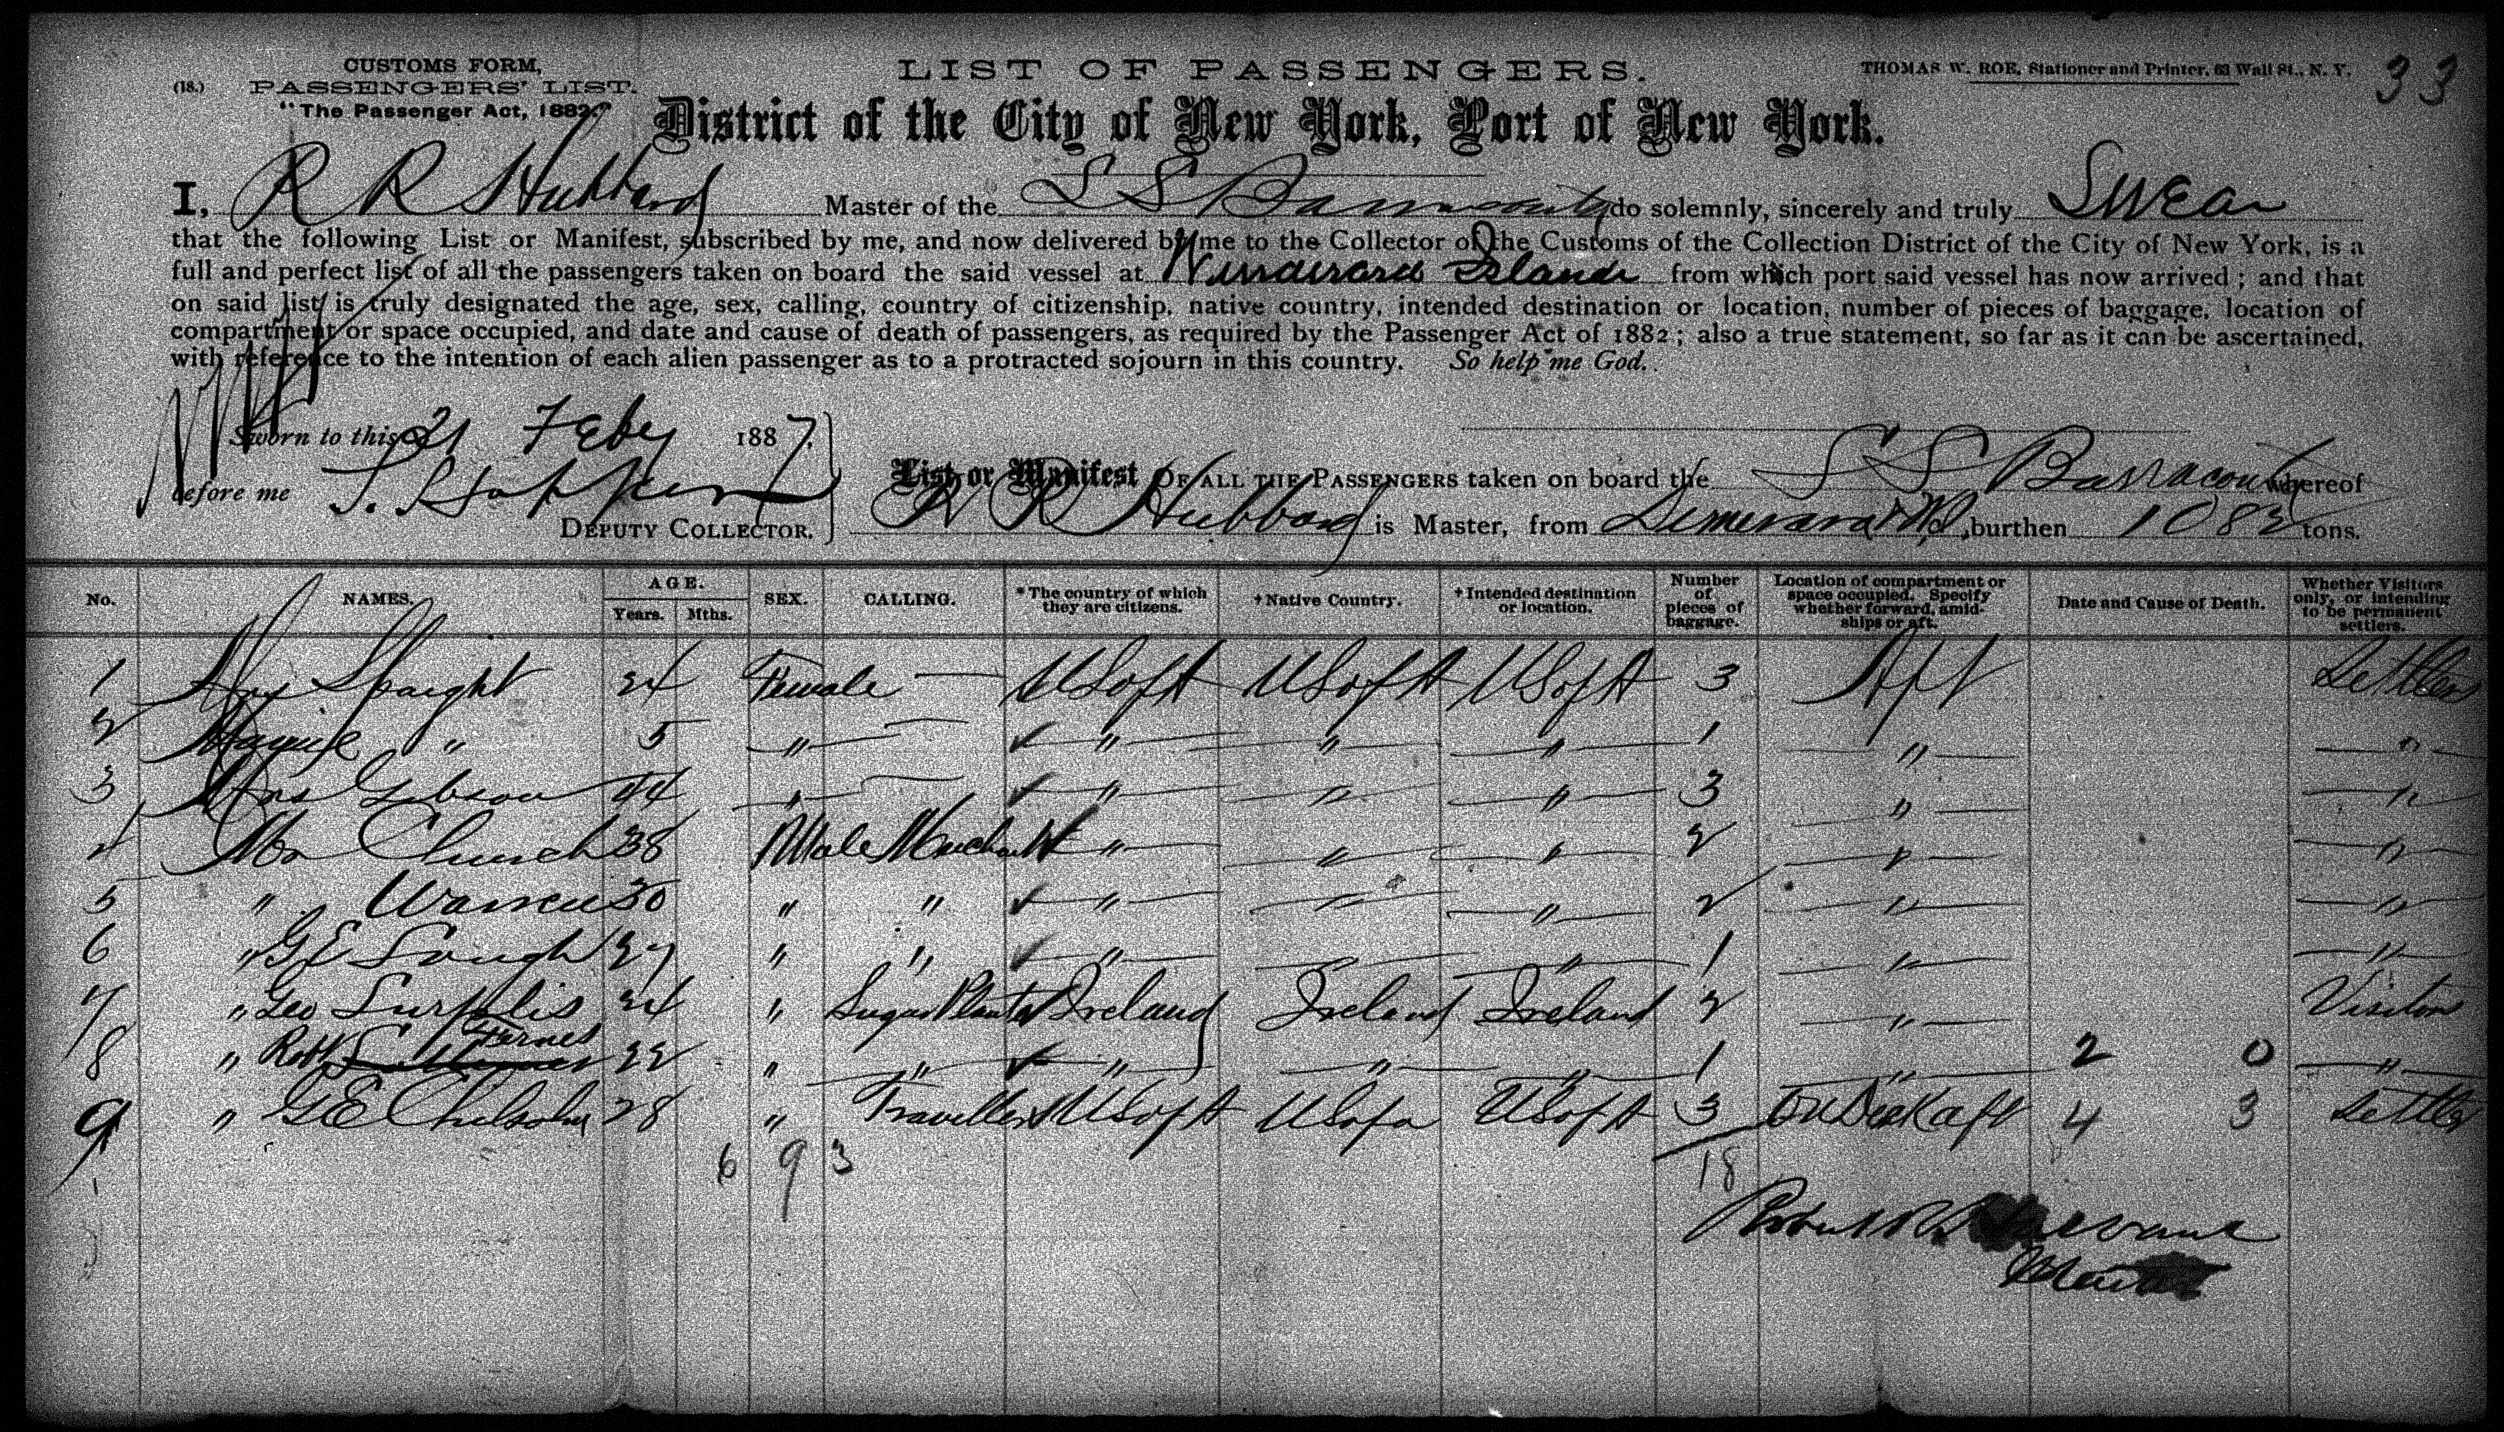 CUSTOMS FORM,
(18.) PASSENGERS' LIST.
"The Passenger Act, 1882."
LIST OF PASSENGERS.
THOMAS W. ROE, Stationer and Printer, 63 Wall St., N. Y.
33
District of the City of New York, Port of New York.
I, R R Hubbard Master of the S S Barracouta do solemnly, sincerely and truly Swear
that the following List or Manifest, subscribed by me, and now delivered by me to the Collector of the Customs of the Collection District of the City of New York, is a
full and perfect list of all the passengers taken on board the said vessel at Windward Islands from which port said vessel has now arrived ; and that
on said list is truly designated the age, sex, calling, country of citizenship, native country, intended destination or location, number of pieces of baggage, location of
compartment or space occupied, and date and cause of death of passengers, as required by the Passenger Act of 1882 ; also a true statement, so far as it can be ascertained,
with reference to the intention of each alien passenger as to a protracted sojourn in this country. So help me God.
Sworn to this 21 Feby 1887.
before me
DEPUTY COLLECTOR.
List or Manifest OF ALL THE PASSENGERS taken on board the S S Barracouta whereof
R R Hubbard is Master, from Demerara & WI, burthen 1083 tons.
No. NAMES. AGE. Years. Mths. SEX. CALLING. *The country of which they are citizens. †Native Country. †Intended destination or location. Number of pieces of baggage. Location of compartment or space occupied. Specify whether forward, amidships or aft. Date and Cause of Death. Whether Visitors only, or intending to be permanent settlers.
1 Mrs Spaight 24 Female — USofA USofA USofA 3 Aft Settler
2 " 5 " — " " " 1 " "
3 Mrs Gibson 44 " — " " " 3 " "
4 Mr Church 38 Male Merchant " " " 2 " "
5 " Warren 30 " " " " " 2 " "
6 " GE Lough 27 " " " " " 1 " "
7 " Geo Surplis 24 " Sugar Planter Ireland Ireland Ireland 2 " Visitor
8 " Robt Fernes 22 " " " " " 1 " 2 0 "
9 " GE Chilsolm 28 " Traveller USofA USofa USofA 3 On Deck aft 4 3 Settler
6 9 3
18
Robert R